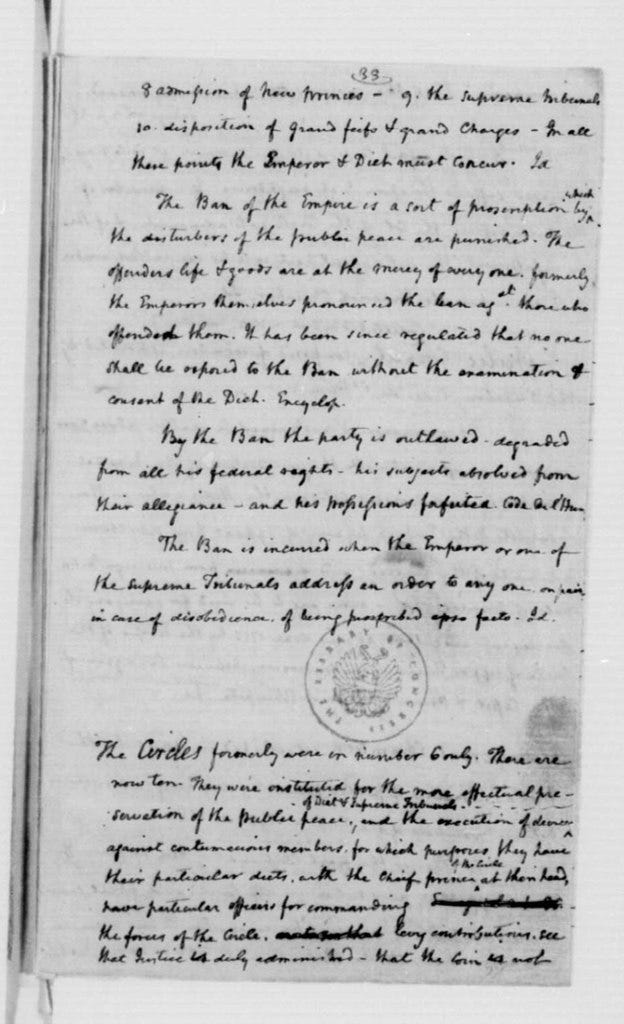 33
8 admission of New princes - 9. the supreme tribunals
10. disposition of Grand fiefs & grand Charges - In all
these points the Emperor & Diet must concur. Id
The Ban of the Empire is a sort of proscription by which
the disturbers of the public peace are punished. The
offenders life & goods are at the mercy of every one. formerly
the Emperors themselves pronounced the ban agst. those who
offended them. It has been since regulated that no one
shall be exposed to the Ban without the examination &
consent of the Diet. Encyclop.
By the Ban the party is outlawed - degraded
from all his federal rights - his subjects absolved from
their allegiance - and his possessions forfeited. Code de l'Hum
The Ban is incurred when the Emperor or one of
the supreme Tribunals address an order to any one, on pain
in case of disobedience, of being proscribed ipso facto. Id.
THE LIBRARY OF CONGRESS
The Circles formerly were in number 6 only. There are
now ten. They were instituted for the more effectual pre-
of Diet & Supreme Tribunals
servation of the public peace, and the execution of decrees
against contumacious members, for which purposes they have
of the Circle
their particular diets, with the Chief prince at their head,
have particular officers for commanding
the forces of the Circle, levy contributions, see
that Justice is duly administered - that the coin is not